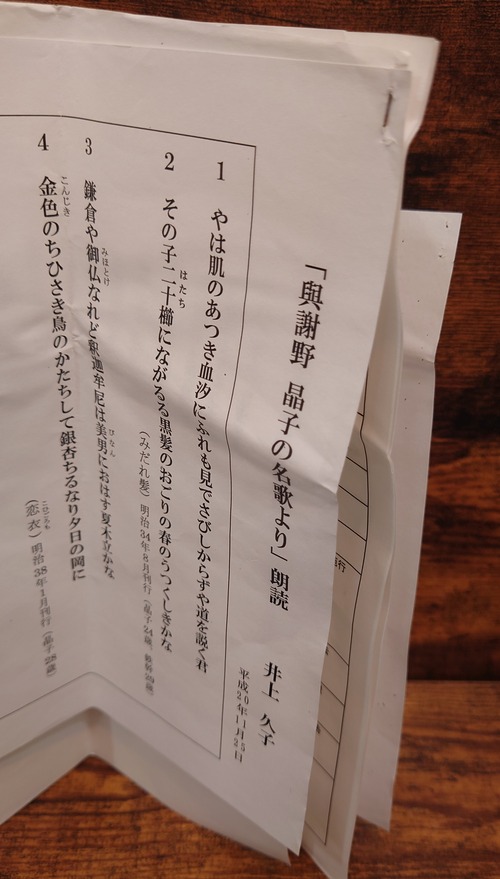 「與謝野 晶子の名歌より」朗読 井上 久子
1 やは肌のあつき血汐にふれも見でさびしからずや道を説く君
2 その子二十櫛にながるる黒髪のおごりの春のうつくしきかな
はたち
(みだれ髪) 明治34年8月刊行 (晶子24歳、鉄幹29歳)
3 鎌倉や御仏なれど釈迦牟尼は美男におはす夏木立かな
みほとけ
びなん
4 金色のちひさき鳥のかたちして銀杏ちるなり夕日の岡に
こんじき
(恋衣) 明治38年1月刊行 (晶子28歳)
こひごろも